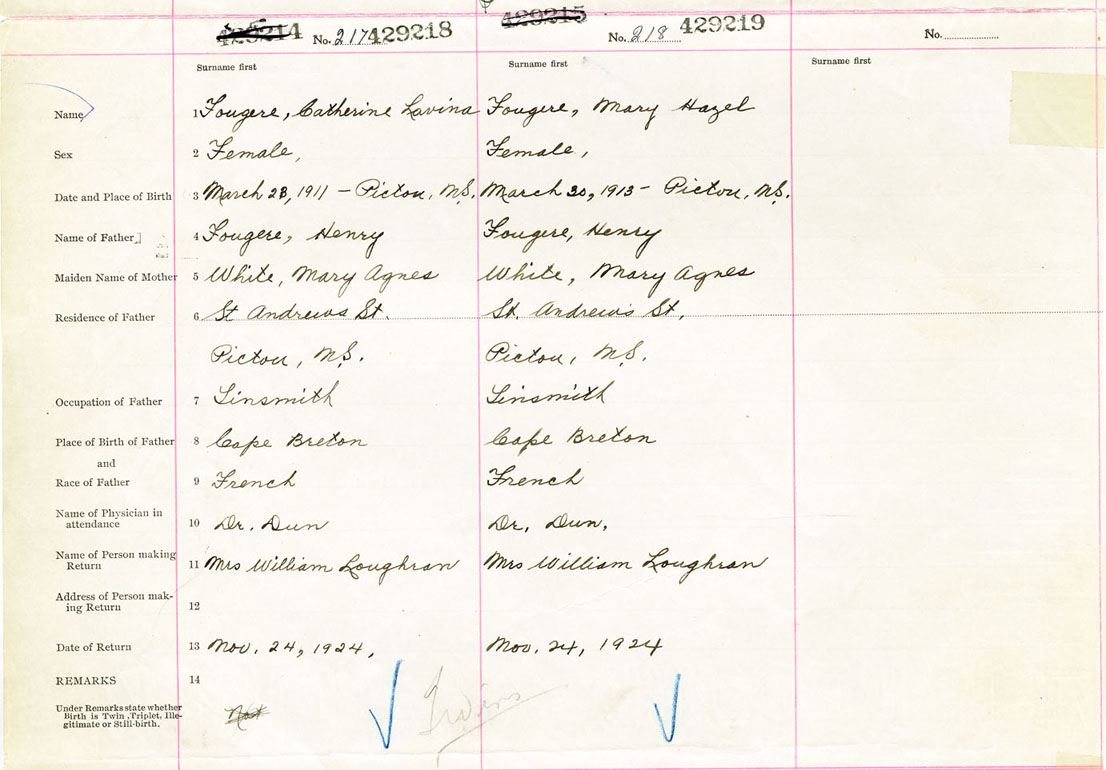 429214 No. 217 429218 429215 No. 218 429219 No.
Surname first Surname first Surname first
Name 1 Fougere, Catherine Lavina Fougere, Mary Hazel
Sex 2 Female, Female,
Date and Place of Birth 3 March 28, 1911 - Pictou, N.S. March 30, 1913 - Pictou, N.S.
Name of Father 4 Fougere, Henry Fougere, Henry
Maiden Name of Mother 5 White, Mary Agnes White, Mary Agnes
Residence of Father 6 St Andrews St. St. Andrews St,
Pictou, N.S. Pictou, N.S.
Occupation of Father 7 Tinsmith Tinsmith
Place of Birth of Father 8 Cape Breton Cape Breton
and
Race of Father 9 French French
Name of Physician in
attendance 10 Dr. Dun Dr, Dun,
Name of Person making
Return 11 Mrs William Loughran Mrs William Loughran
Address of Person mak-
ing Return 12
Date of Return 13 Nov. 24, 1924, Nov. 24, 1924
REMARKS 14
Under Remarks state whether
Birth is Twin, Triplet, Ille-
gitimate or Still-birth. Not